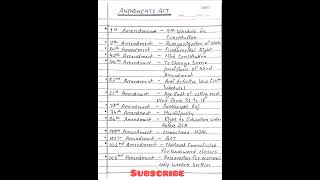 AMENDMENTS ACT
1st Amendment - 9th Schedule in
Constitution
7th Amendment - Reorganisation of state
24th Amendment - Fundamental Right
42nd Amendment - Mini Constitution
44th Amendment - To Change Some
provisions of 42nd
Amendment
52nd Amendment - Anti defective law (10th
Schedule)
61st Amendment - Age limit of voting
from 21 to 18
73rd Amendment - Panchayati Raj
74th Amendment - Municipality
86th Amendment - Right to Education under
Article 21A
99th Amendment - NJAC
101st Amendment - GST
102nd Amendment - National Commission
for backward classes
103rd Amendment - Reservation for economi
cally weaker section
SUBSCRIBE